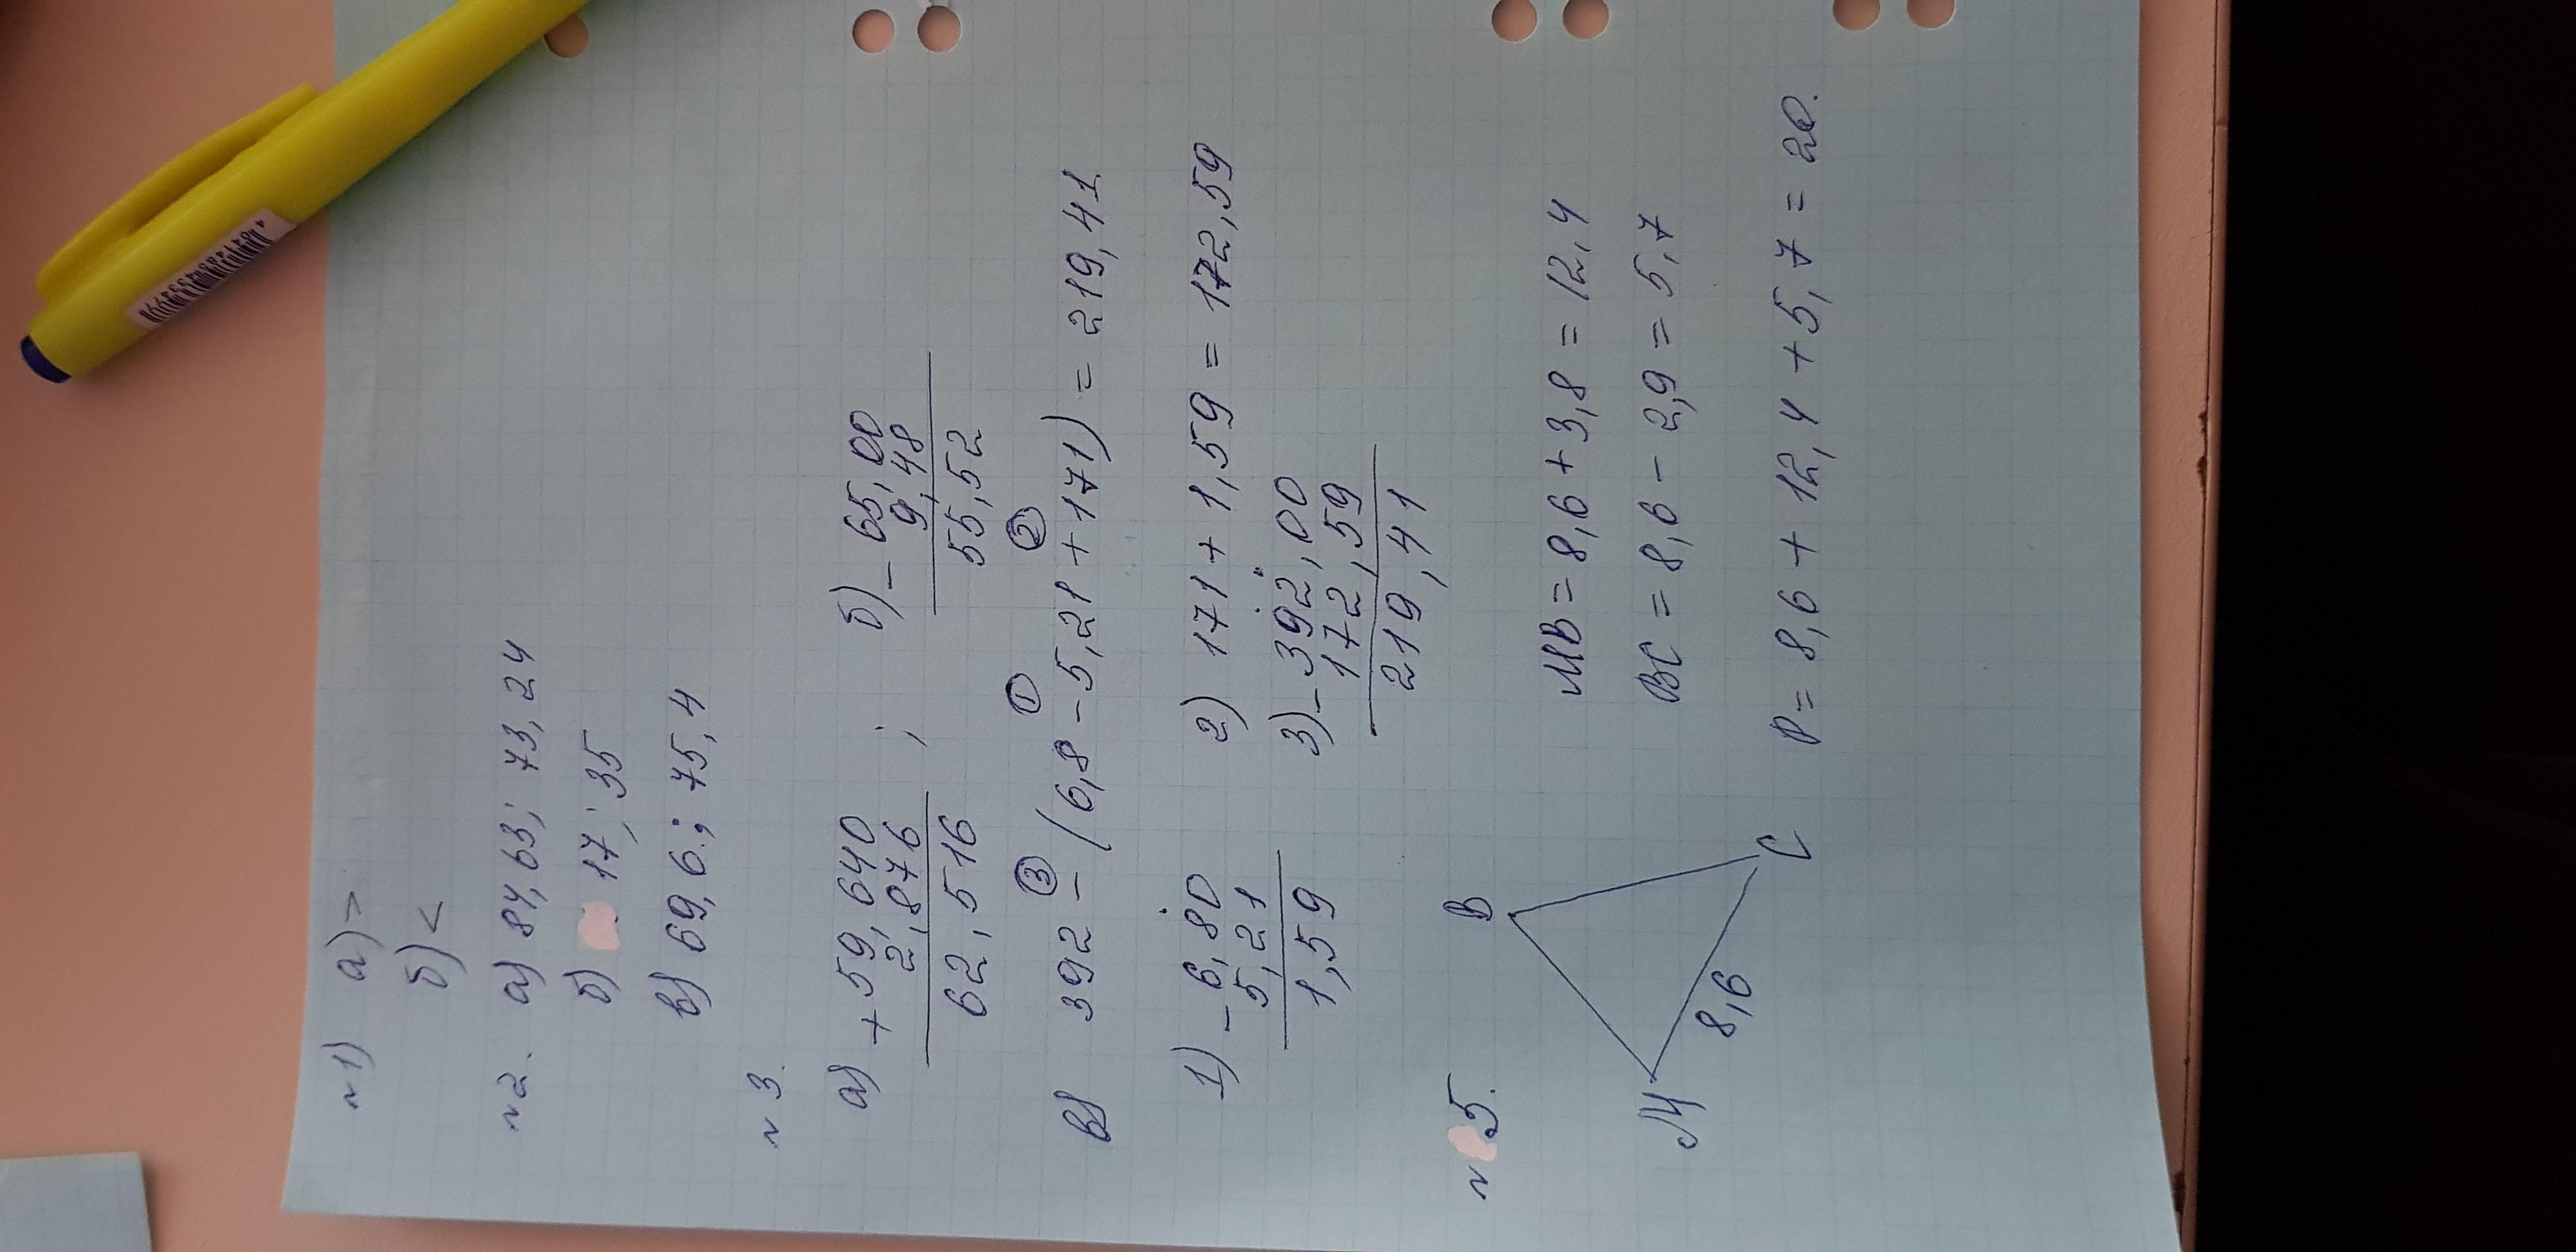 N1) а) >
б) <
N2. а) 84,63; 73,24
б) 17; 35
в) 69,6; 75,4
N3.
а) + 59,640 ; б) - 65,00
2,876 9,48
62,516 55,52
③ ① ②
в) 392 - (6,8 - 5,21 + 171) = 219,41
1) - 6,80 2) 171 + 1,59 = 172,59
5,21 3) - 392,00
1,59 172,59
219,41
N5.
В МВ = 8,6 + 3,8 = 12,4
М ВС = 8,6 - 2,9 = 5,7
8,6
С Р = 8,6 + 12,4 + 5,7 = 20.